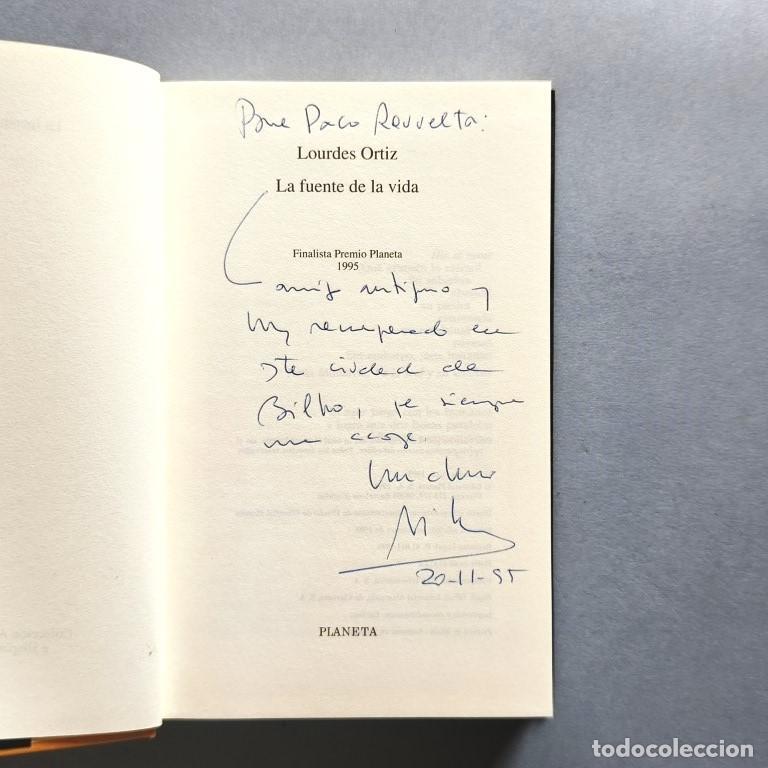 Para Paco Revuelta:
Lourdes Ortiz
La fuente de la vida
Finalista Premio Planeta
1995
amigo antiguo y
hoy recuperado en
esta ciudad de
Bilbao, que siempre
me acoge.
20-11-95
PLANETA
todocoleccion